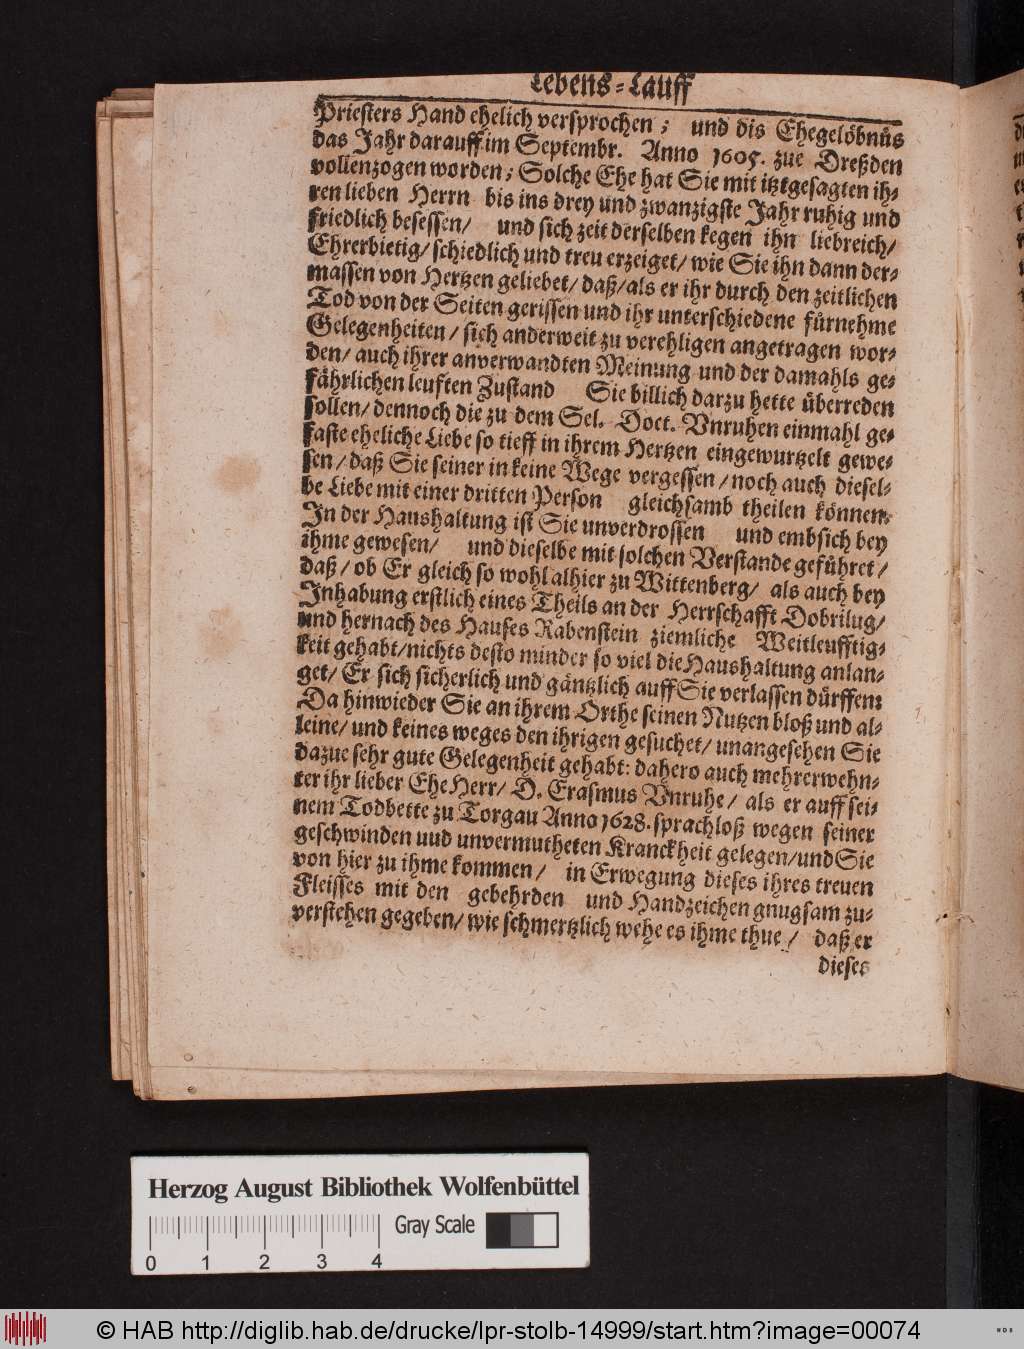 Lebens-Lauff
Priesters Hand ehelich versprochen; und dis Ehegelöbnüs
das Jahr darauff im Septembr. Anno 1605. zue Dreßden
vollenzogen worden; Solche Ehe hat Sie mit itztgesagten ih-
ren lieben Herrn bis ins drey und zwanzigste Jahr ruhig und
friedlich besessen/ und sich zeit derselben kegen ihn liebreich/
Ehrerbietig/ schiedlich und treu erzeiget/ wie Sie ihn dann der-
massen von Hertzen geliebet/ daß/ als er ihr durch den zeitlichen
Tod von der Seiten gerissen und ihr unterschiedene fürnehme
Gelegenheiten/ sich anderweit zu verehligen angetragen wor-
den/ auch ihrer anverwandten Meinung und der damahls ge-
fährlichen leuften Zustand Sie billich darzu hette überreden
sollen/ dennoch die zu dem Sel. Doct. Vnruhen einmahl ge-
faste eheliche Liebe so tieff in ihrem Hertzen eingewurtzelt gewe-
sen/ daß Sie seiner in keine Wege vergessen/ noch auch diesel-
be Liebe mit einer dritten Person gleichsamb theilen können.
In der Haushaltung ist Sie unverdrossen und embsich bey
ihme gewesen/ und dieselbe mit solchen Verstande geführet/
daß/ ob Er gleich so wohl alhier zu Wittenberg/ als auch bey
Inhabung erstlich eines Theils an der Herrschafft Dobrilug/
und hernach des Hauses Rabenstein ziemliche Weitleufftig-
keit gehabt/ nichts desto minder so viel die Haushaltung anlan-
get/ Er sich sicherlich und gäntzlich auff Sie verlassen dürffen:
Da hinwieder Sie an ihrem Orthe seinen Nutzen bloß und al-
leine/ und keines weges den ihrigen gesuchet/ unangesehen Sie
dazue sehr gute Gelegenheit gehabt: dahero auch mehrerwehn-
ter ihr lieber Ehe Herr/ D. Erasmus Vnruhe/ als er auff sei-
nem Todbette zu Torgau Anno 1628. sprachloß wegen seiner
geschwinden uud unvermutheten Kranckheit gelegen/ und Sie
von hier zu ihme kommen/ in Erwegung dieses ihres treuen
Fleisses mit den gebehrden und Handzeichen gnugsam zu-
verstehen gegeben/ wie schmertzlich wehe es ihme thue/ daß er
dieses
Herzog August Bibliothek Wolfenbüttel
Gray Scale
0 1 2 3 4
© HAB http://diglib.hab.de/drucke/lpr-stolb-14999/start.htm?image=00074